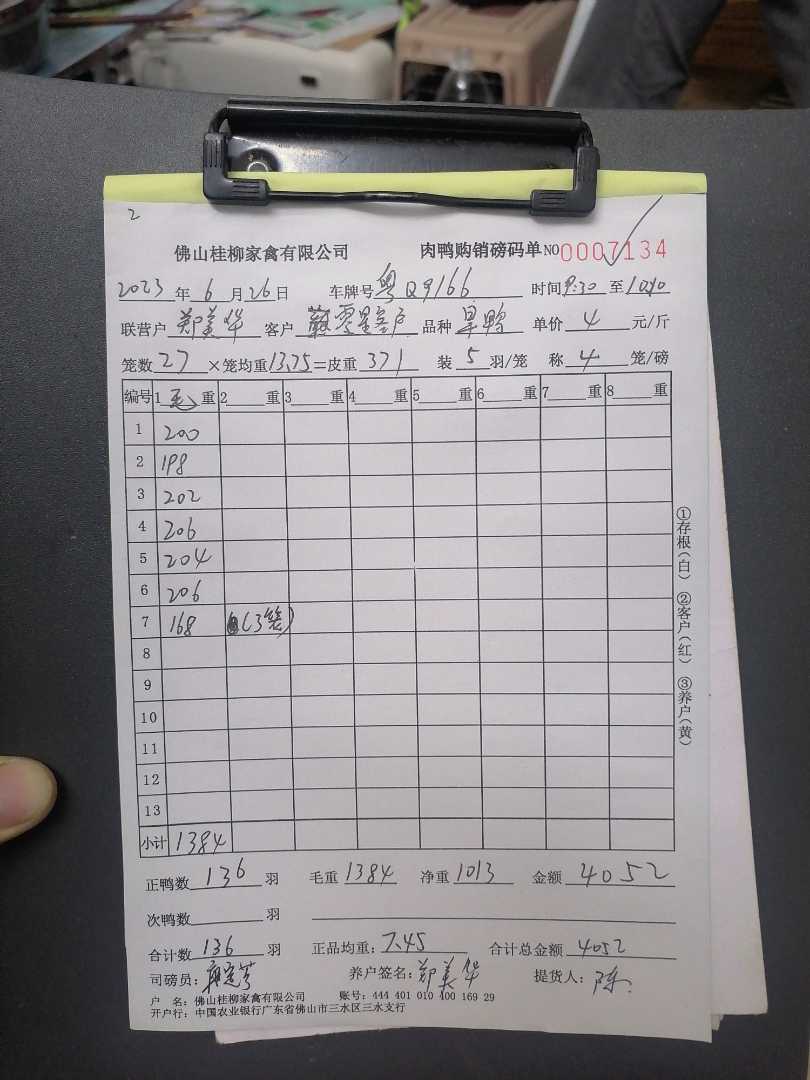 2
佛山桂柳家禽有限公司 肉鸭购销磅码单 NO 0007134
2023年6月26日 车牌号 粤Q9166 时间 9:30 至 10:10
联营户 郑美华 客户 零星客户 品种 旱鸭 单价 4 元/斤
笼数 27 ×笼均重 13.75 =皮重 371 装 5 羽/笼 称 4 笼/磅
编号 1 毛 重 2 重 3 重 4 重 5 重 6 重 7 重 8 重
1 200
2 198
3 202
4 206
5 204
6 206
7 168 (3笼)
8
9
10
11
12
13
小计 1384
正鸭数 136 羽 毛重 1384 净重 1013 金额 4052
次鸭数 羽
合计数 136 羽 正品均重: 7.45 合计总金额 4052
司磅员: 养户签名: 郑美华 提货人: 陈
户 名: 佛山桂柳家禽有限公司 账号: 444 401 010 400 169 29
开户行: 中国农业银行广东省佛山市三水区三水支行
①存根(白) ②客户(红) ③养户(黄)